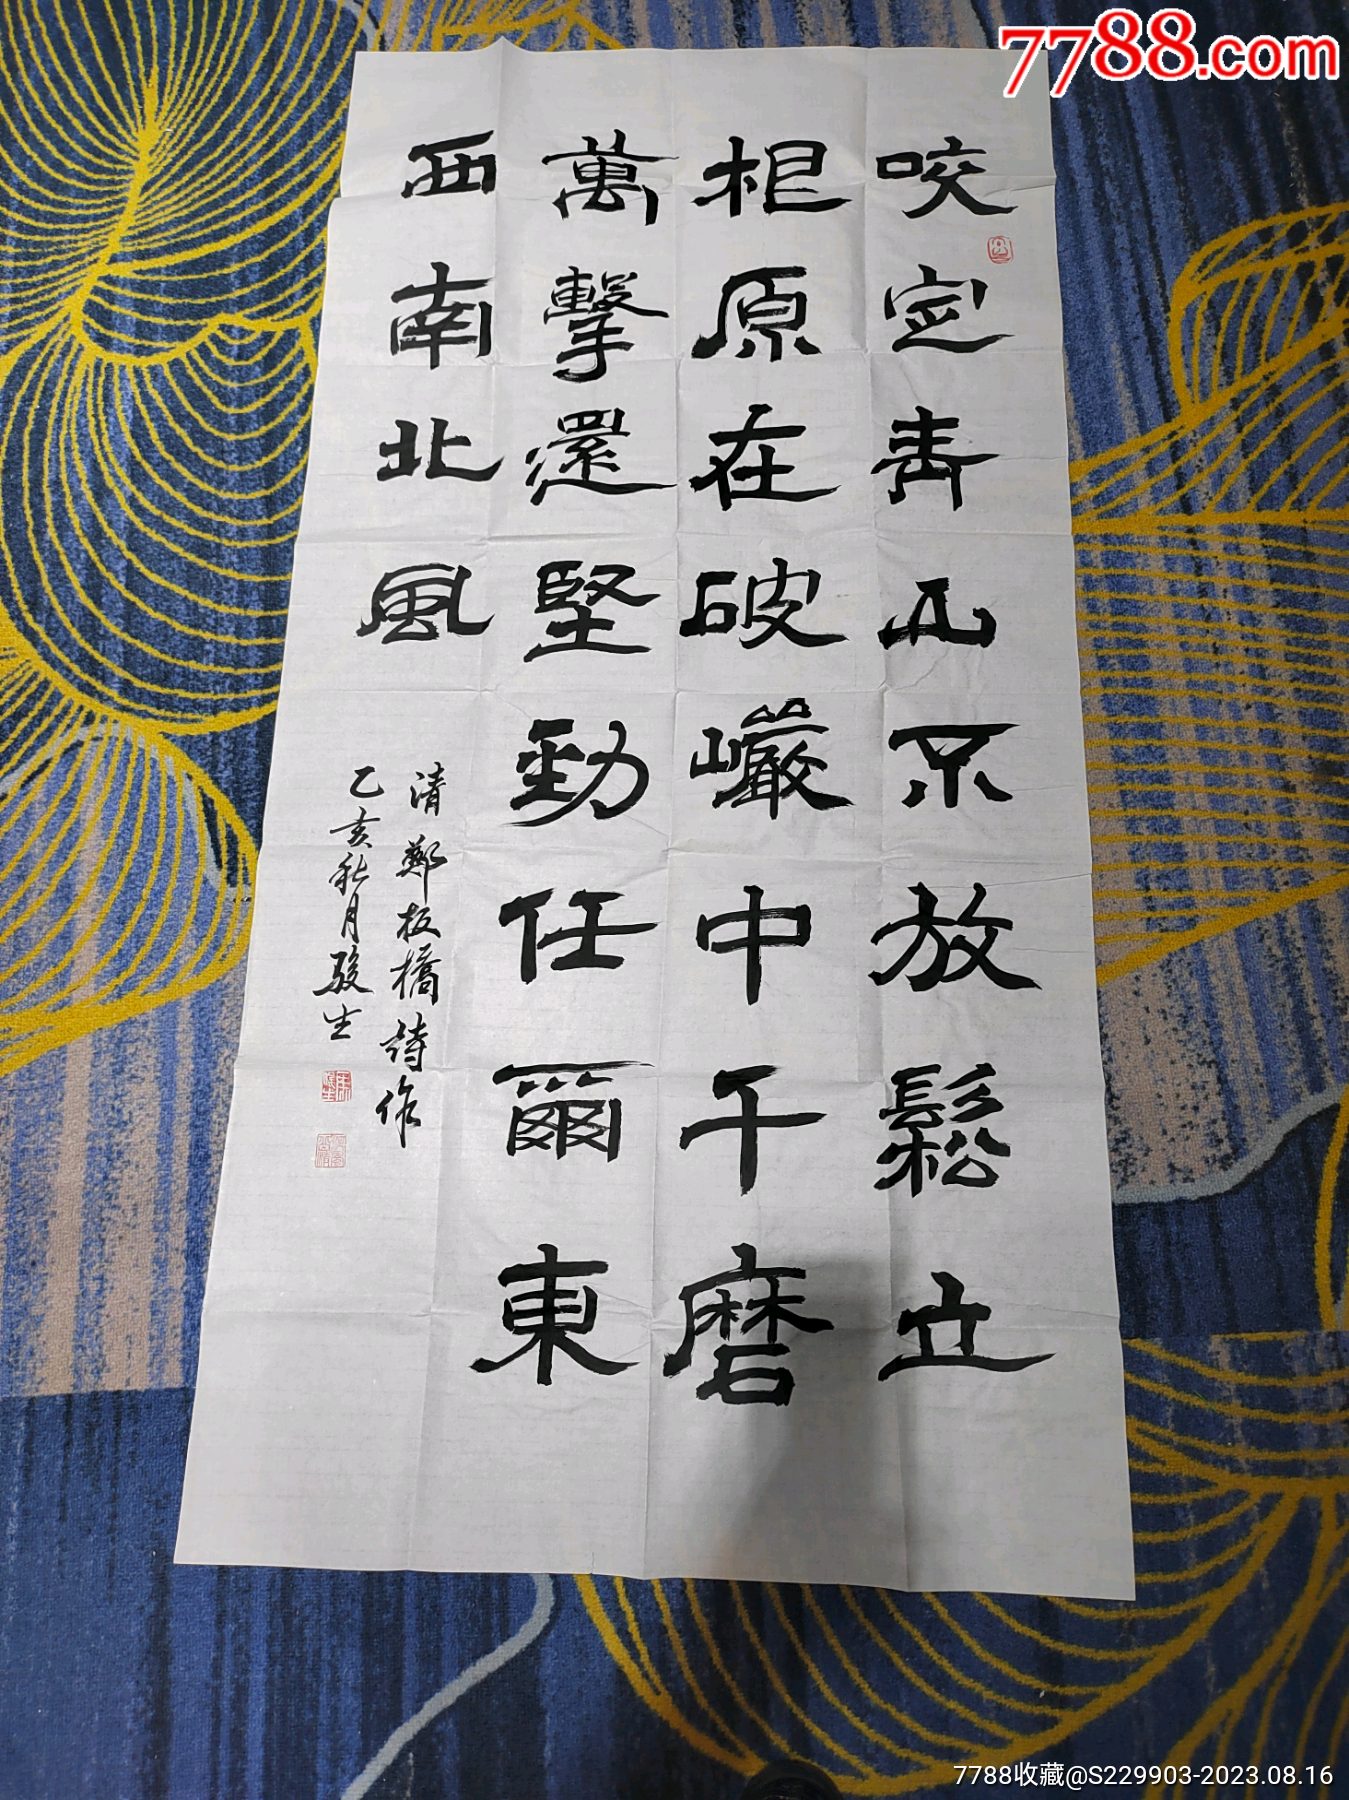 7788.com
咬定青山不放鬆立
根原在破巖中千磨
萬擊還堅勁任爾東
西南北風
清鄭板橋詩作
乙亥秋月駿生
7788收藏@S229903-2023.08.16